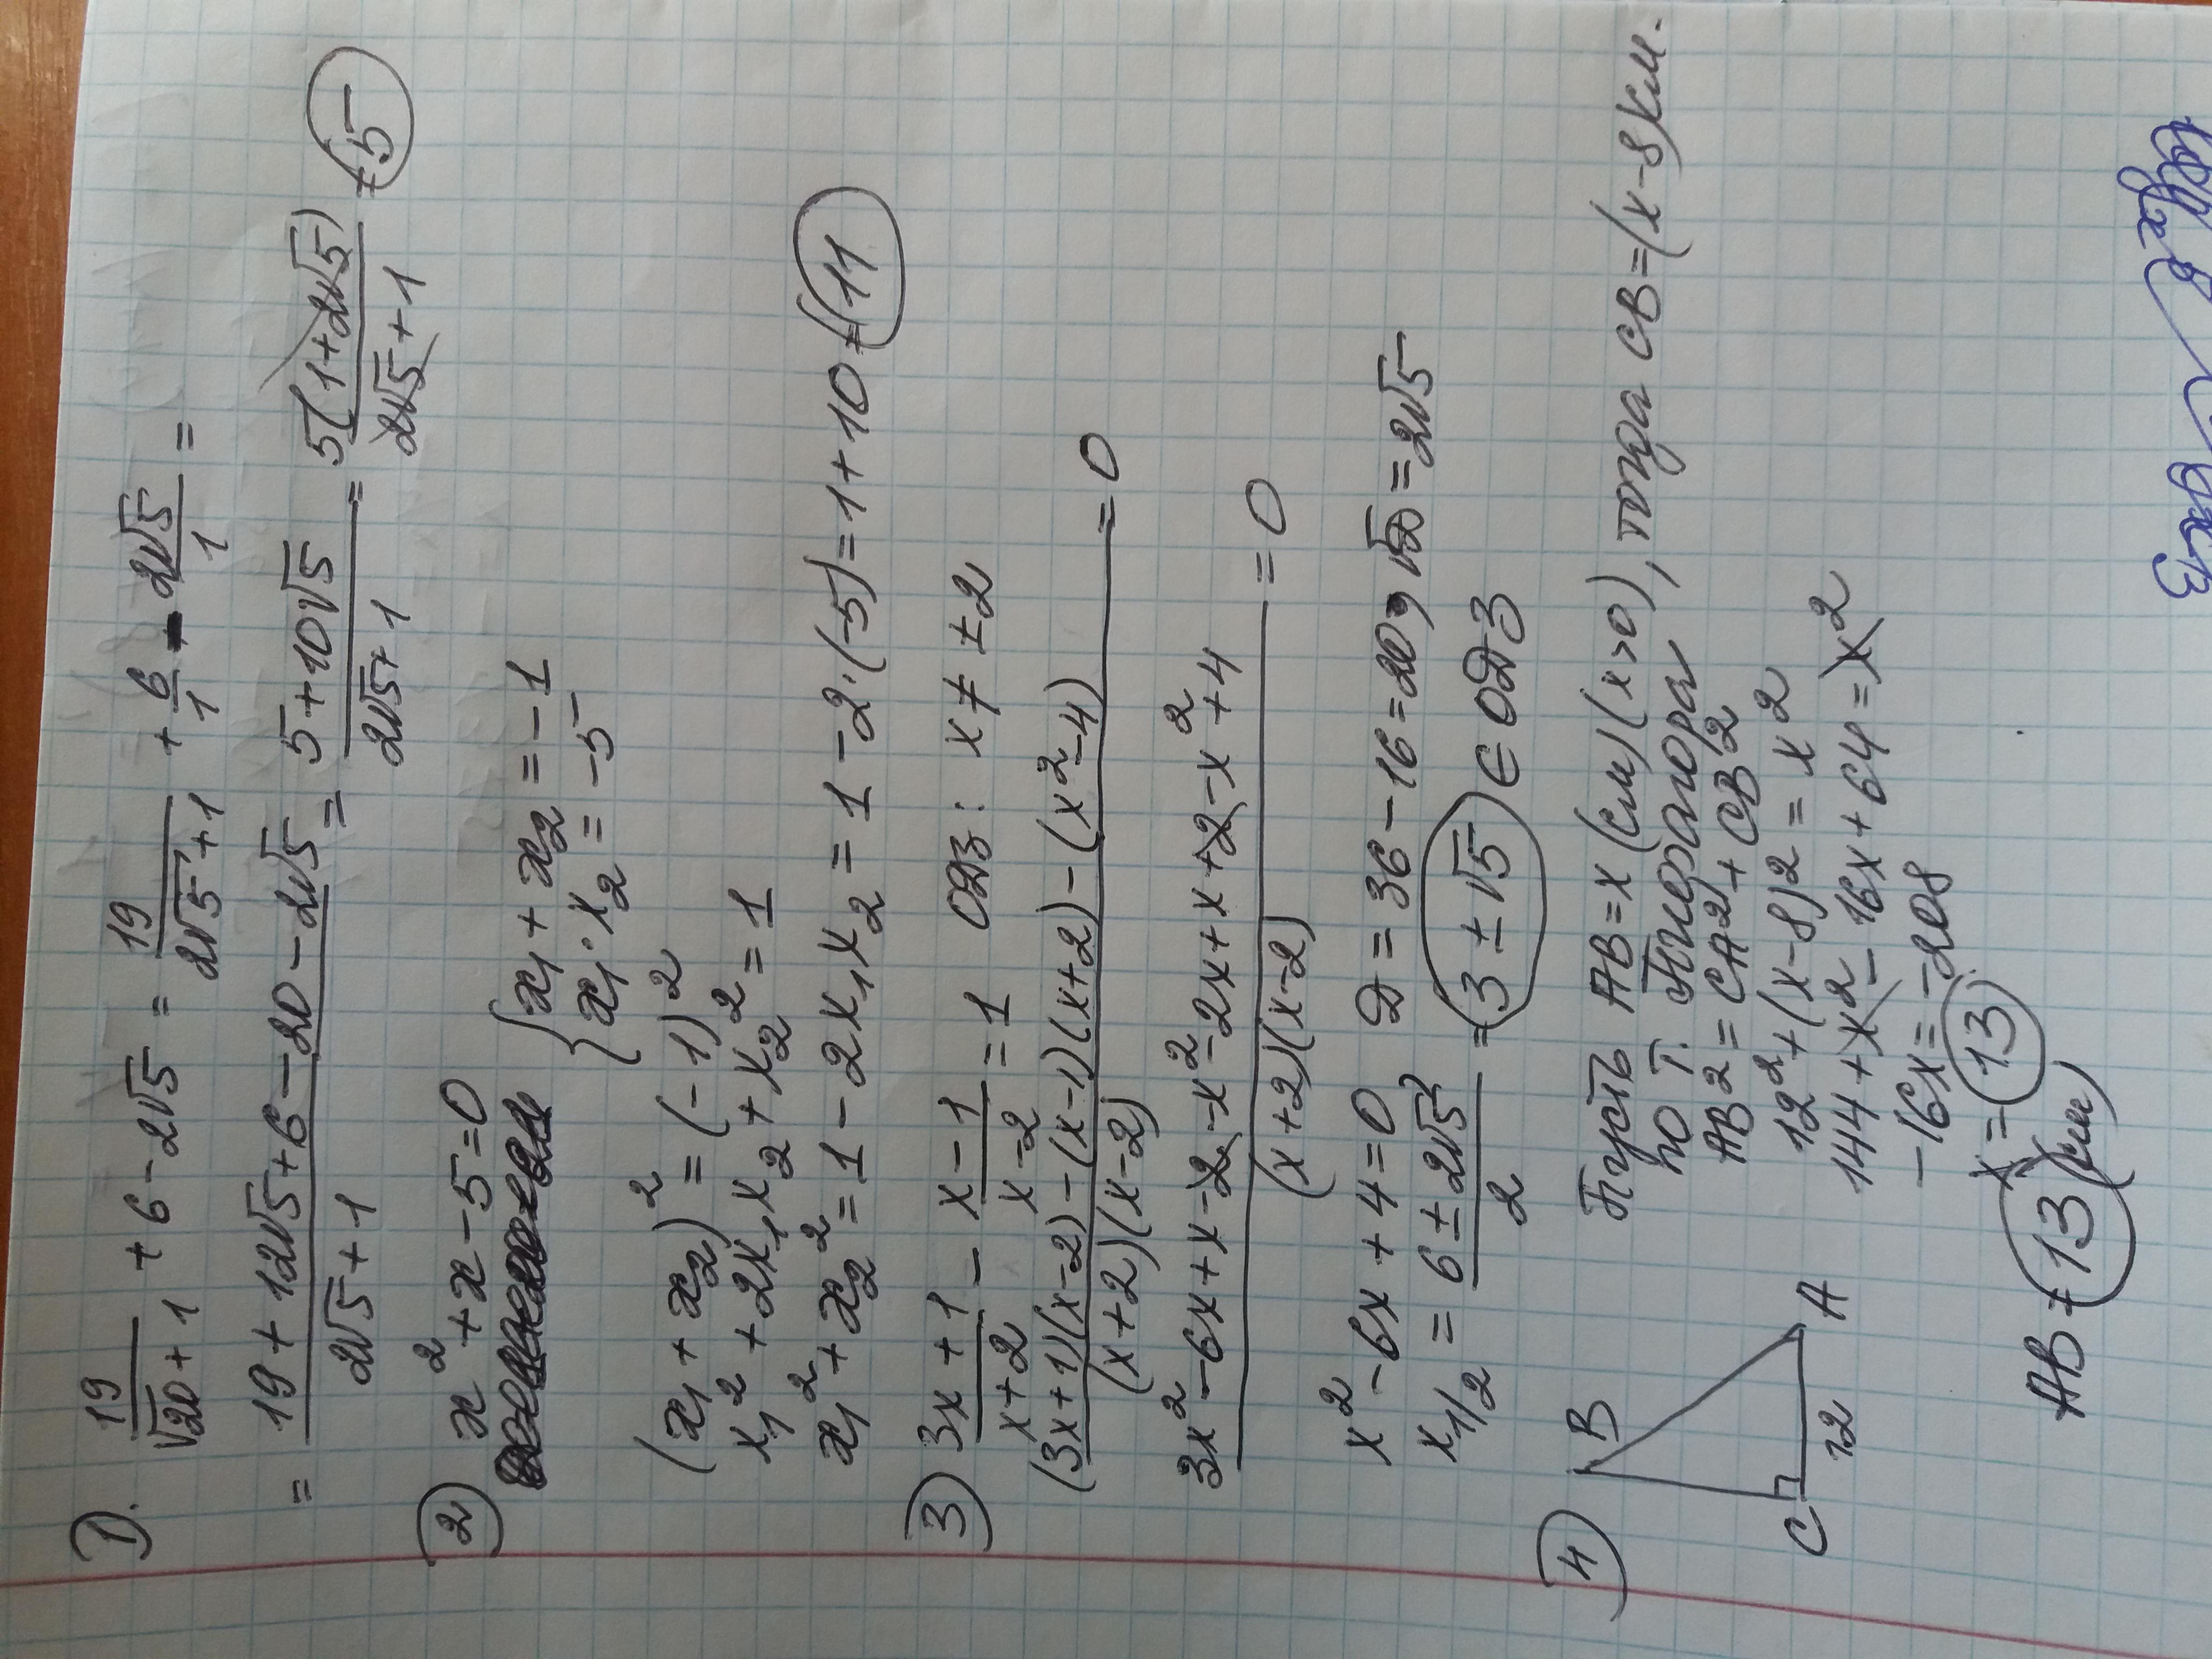 1). 19/(√20+1) + 6 - 2√5 = 19/(2√5+1) + 6/1 - 2√5/1 =
= (19+12√5+6-20-2√5)/(2√5+1) = (5+10√5)/(2√5+1) = 5(1+2√5)/(2√5+1) = 5
2) x²+x-5=0 { x₁+x₂=-1
x₁·x₂=-5
(x₁+x₂)²=(-1)²
x₁²+2x₁x₂+x₂²=1
x₁²+x₂²=1-2x₁x₂=1-2·(-5)=1+10=11
3) (3x+1)/(x+2) - (x-1)/(x-2) = 1 ОДЗ: x≠±2
((3x+1)(x-2)-(x-1)(x+2)-(x²-4))/((x+2)(x-2)) = 0
(3x²-6x+x-2-x²-2x+x+2-x²+4)/((x+2)(x-2)) = 0
x²-6x+4=0 D=36-16=20, √D=2√5
x₁/₂ = (6±2√5)/2 = 3±√5 ∈ ОДЗ
4) B C 12 A
Пусть AB=x (см) (x>0), тогда CB=(x-8) см.
по т. Пифагора
AB²=CA²+CB²
12²+(x-8)²=x²
144+x²-16x+64=x²
-16x=-208
x=13
AB=13 (см)